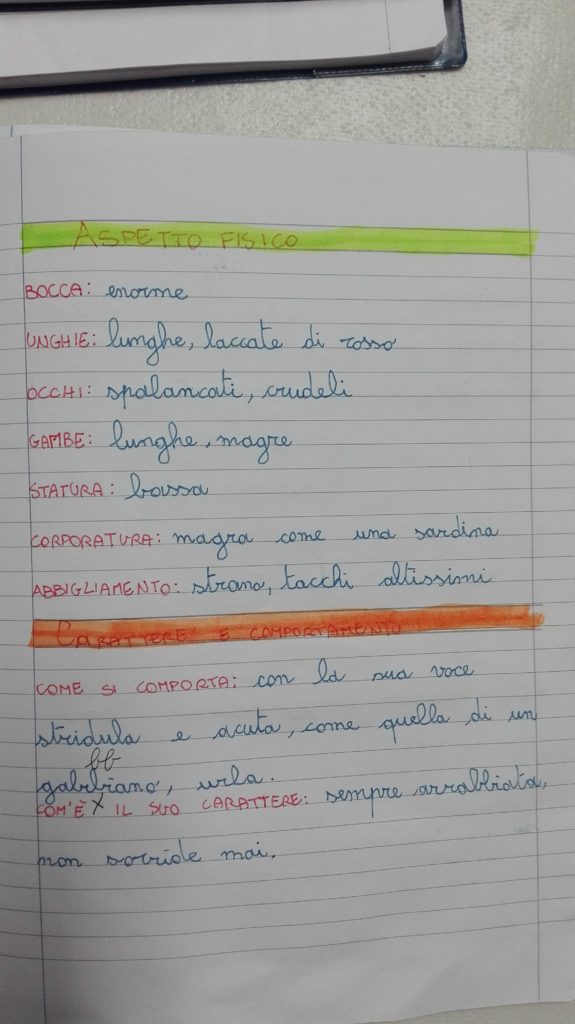 ASPETTO FISICO
BOCCA: enorme
UNGHIE: lunghe, laccate di rosso
OCCHI: spalancati, crudeli
GAMBE: lunghe, magre
STATURA: bassa
CORPORATURA: magra come una sardina
ABBIGLIAMENTO: strano, tacchi altissimi
CARATTERE E COMPORTAMENTO
COME SI COMPORTA: con la sua voce
stridula e acuta, come quella di un
bb
gabbiano, urla.
COM'È X IL SUO CARATTERE: sempre arrabbiata,
non sorride mai.